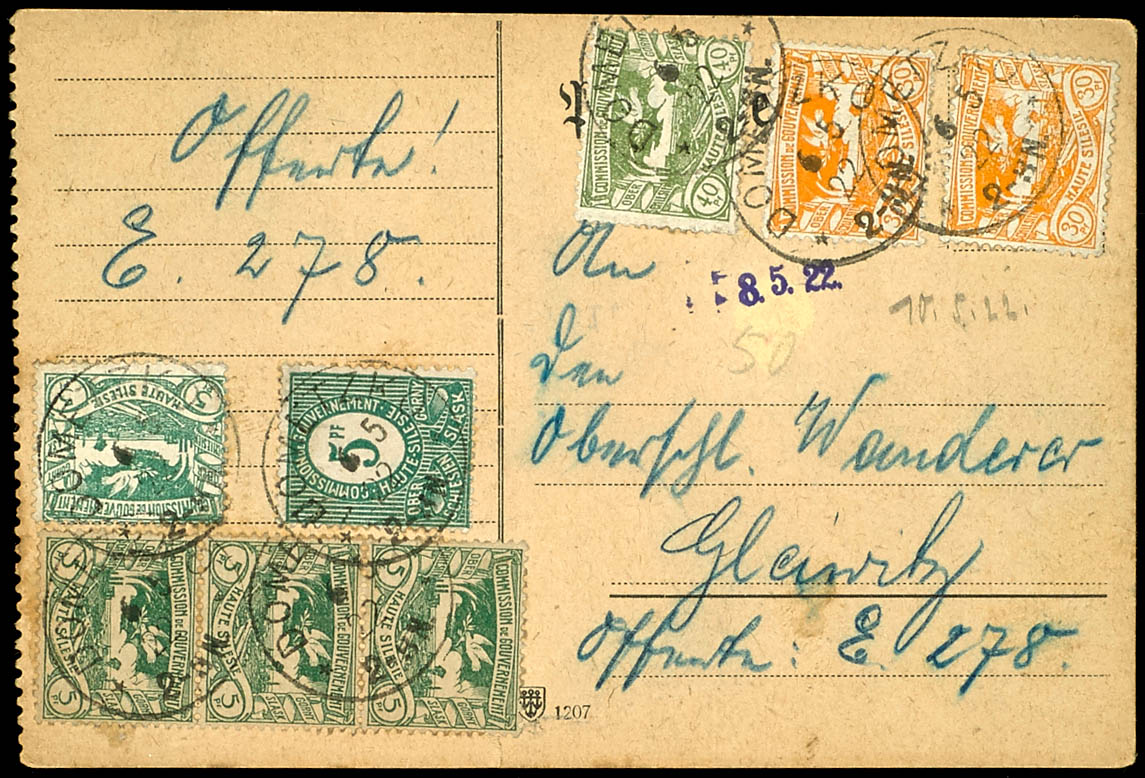 Offerte!
E. 278.
An
8. 5. 22.
10. 5. 22.
50
den
Oberschl. Wanderer
Gleiwitz
Offerte: E. 278.
1207
40 Pf
COMMISSION DE GOUVERNEMENT
HAUTE SILESIE
30 Pf
COMMISSION DE GOUVERNEMENT
HAUTE SILESIE
30 Pf
COMMISSION DE GOUVERNEMENT
HAUTE SILESIE
5
HAUTE SILESIE
COMMISSION DE GOUVERNEMENT
5 PF
COMMISSION DE GOUVERNEMENT · HAUTE-SILESIE
OBERSCHLESIEN
GÓRNY ŚLĄSK
5
COMMISSION DE GOUVERNEMENT
HAUTE SILESIE
5
COMMISSION DE GOUVERNEMENT
HAUTE SILESIE
5
COMMISSION DE GOUVERNEMENT
HAUTE SILESIE